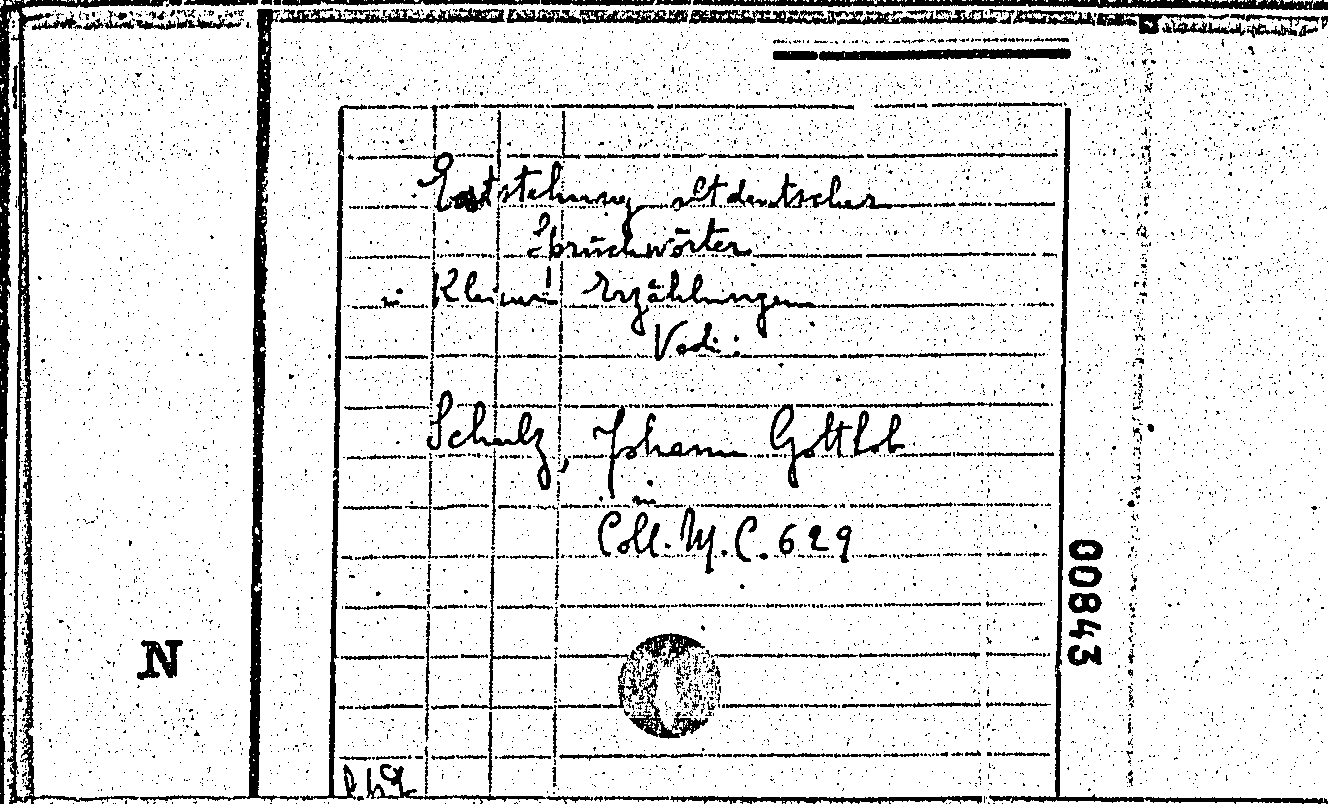 Entstehung altdeutscher
Sprüchwörter
in Kleinen Erzählungen
Vedi:
Schulz, Johann Gottlob
in
Coll. M. C. 629
00843
N